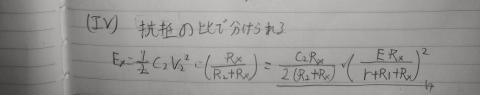 (IV) 抗抵の比で分けられる
Ex = 1/2 C₂V₂² · (Rx/(R₂+Rx)) = C₂Rx/(2(R₂+Rx)) · (ERx/(r+R₁+Rx))²